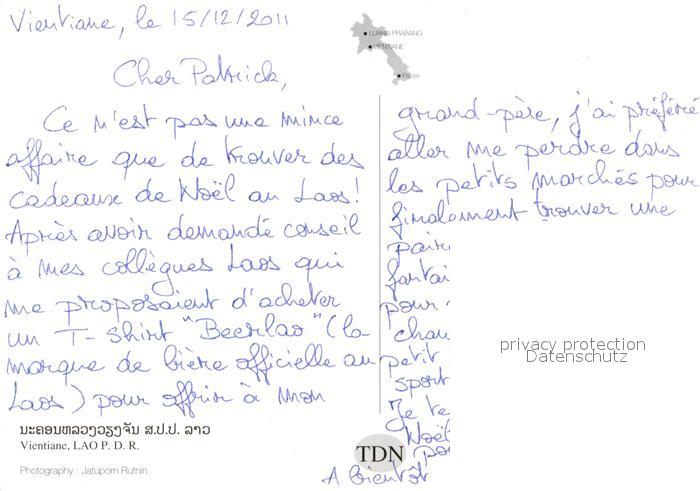 Vientiane, le 15/12/2011
Cher Patrick,
Ce n'est pas une mince
affaire que de trouver des
cadeaux de Noël au Laos!
Après avoir demandé conseil
à mes collègues Laos qui
me proposaient d'acheter
un T-shirt "Beerlao" (la
marque de bière officielle au
Laos) pour offrir à mon
LUANG PRABANG
VIENTIANE
grand-père, j'ai préféré
aller me perdre dans
les petits marchés pour
finalement trouver une
pair
fantai
pour
chau
petit
sport
Je te
Noël
po
A bientôt
privacy protection
Datenschutz
ນະຄອນຫລວງວຽງຈັນ ສ.ປ.ປ. ລາວ
Vientiane, LAO P. D. R.
Photography : Jatuporn Rutnin
TDN